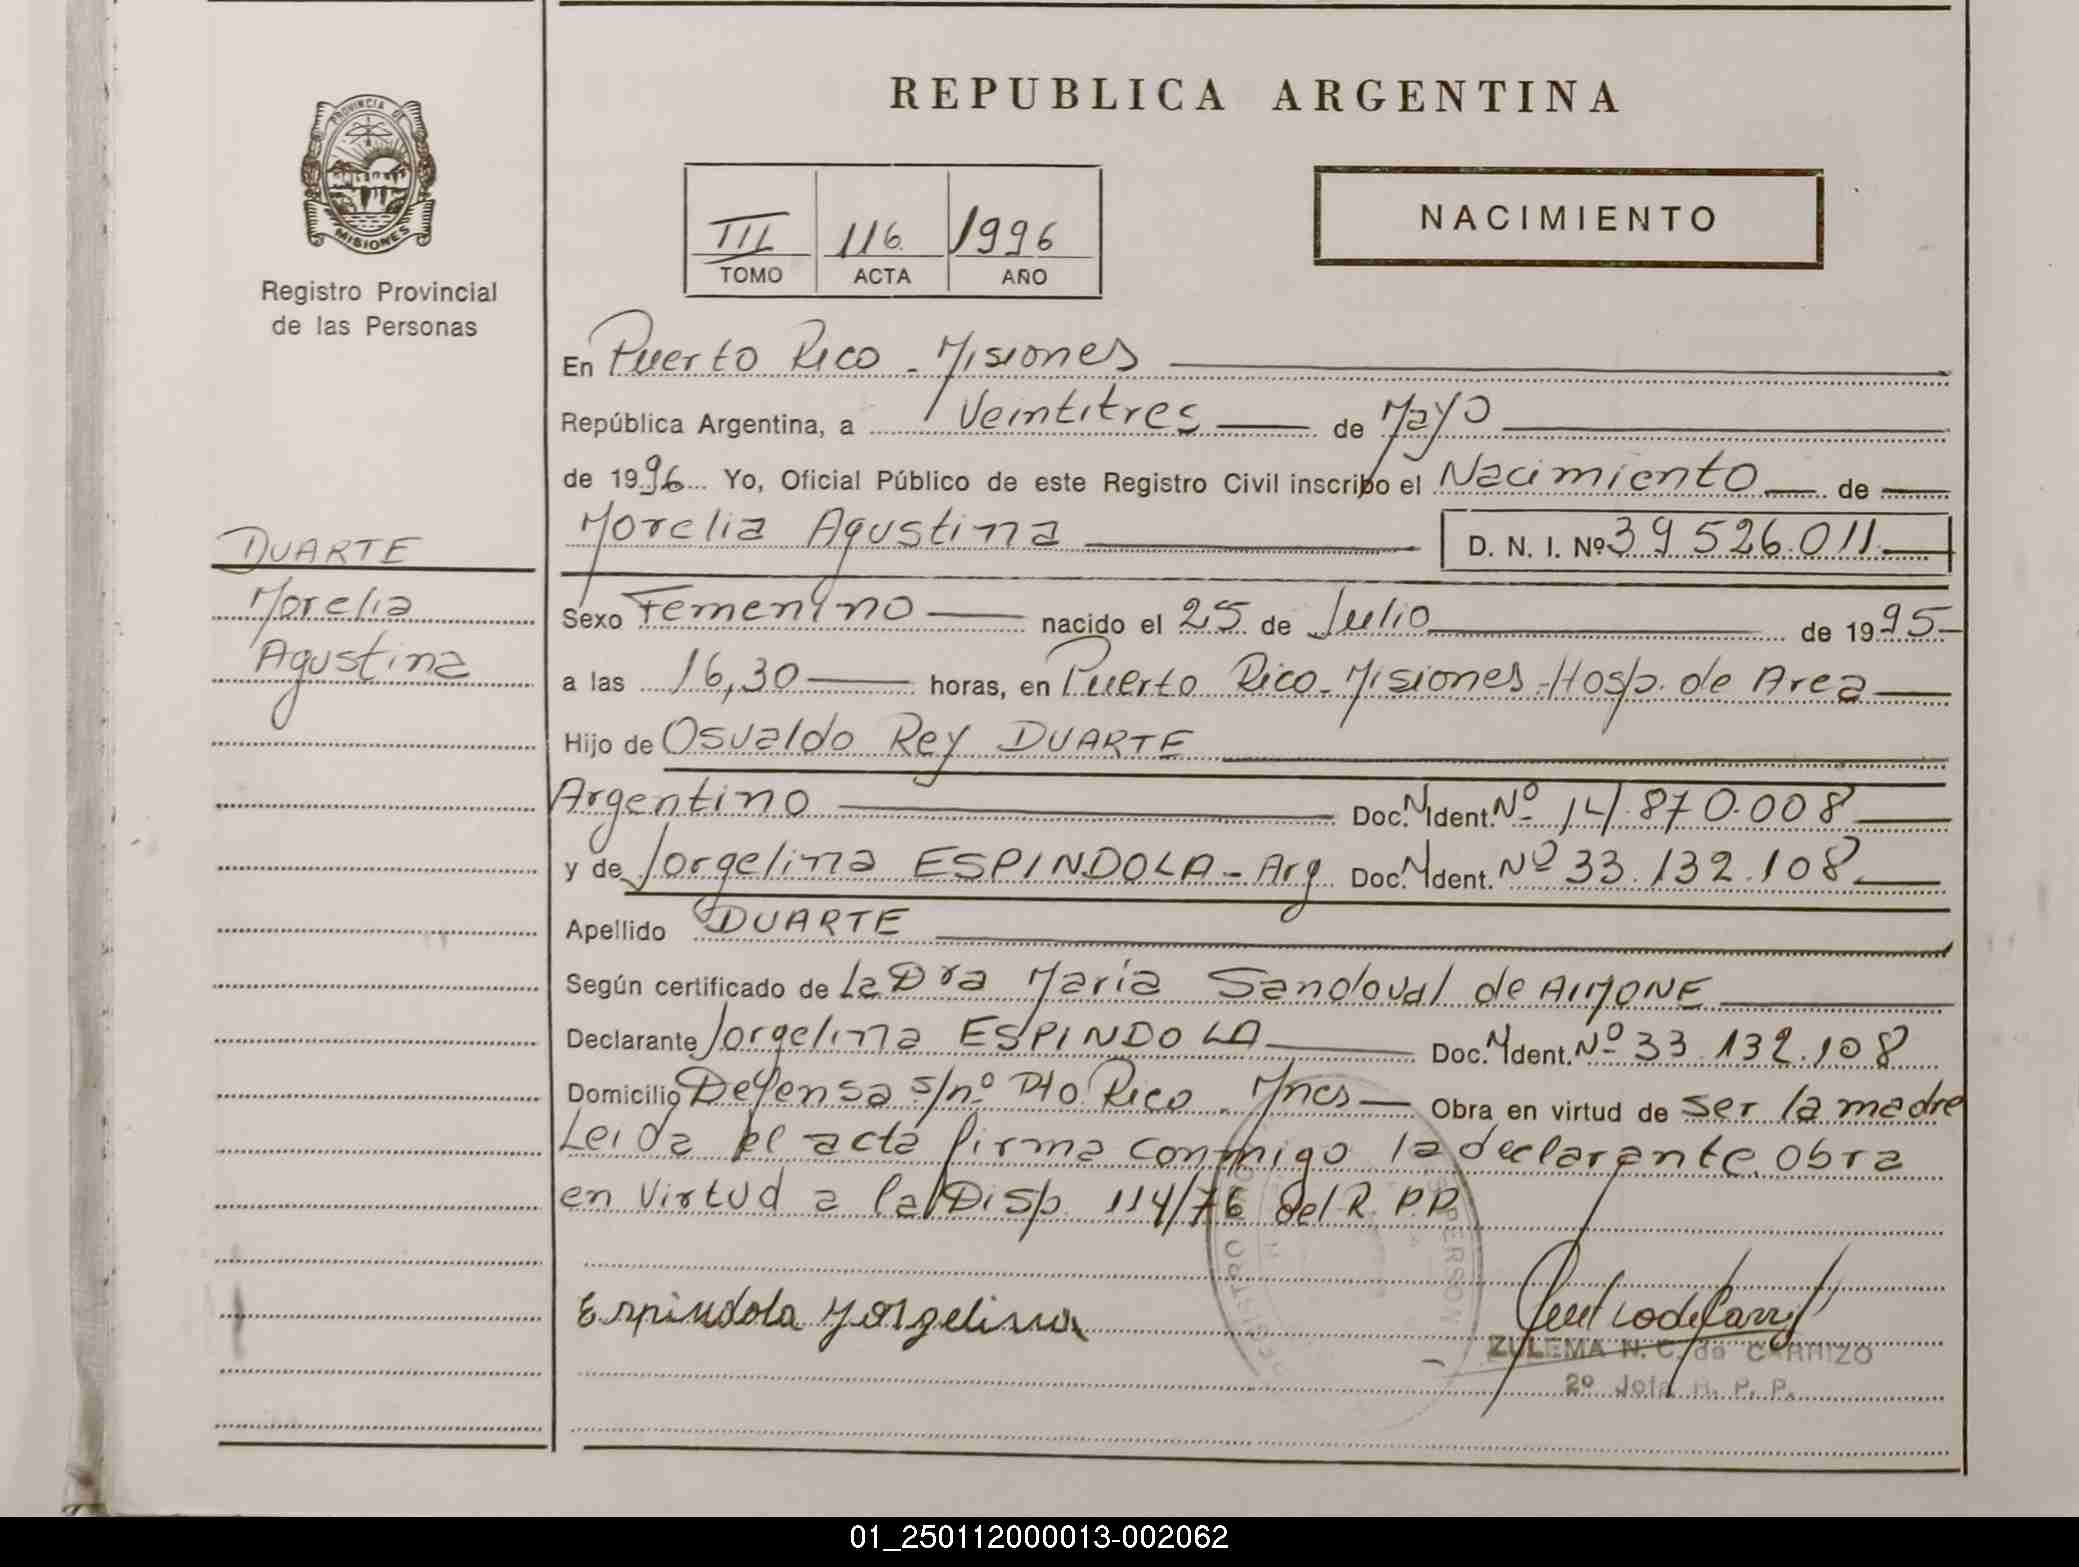 REPUBLICA ARGENTINA
PROVINCIA DE
MISIONES
Registro Provincial
de las Personas
III 116 1996
TOMO ACTA AÑO
NACIMIENTO
En Puerto Rico - Misiones
República Argentina, a Veintitres de Mayo
de 1996 Yo, Oficial Público de este Registro Civil inscribo el Nacimiento de
Morelia Agustina D. N. I. Nº 39.526.011
DUARTE
Morelia
Agustina
Sexo Femenino nacido el 25 de Julio de 1995
a las 16,30 horas, en Puerto Rico - Misiones - Hosp. de Area
Hijo de Osvaldo Rey DUARTE
Argentino Doc. N Ident. Nº 14.870.008
y de Jorgelina ESPINDOLA - Arg Doc. N Ident. Nº 33.132.108
Apellido DUARTE
Según certificado de la Dra Maria Sandoval de AIMONE
Declarante Jorgelina ESPINDOLA Doc. N Ident. Nº 33.132.108
Domicilio Defensa s/nº Pto Rico - Mnes Obra en virtud de ser la madre
Leida el acta firma conmigo la declarante. Obra
en virtud a la Disp. 114/76 del R.P.P.
Espindola Jorgelina
ZULEMA N. C. de CARRIZO
2º Jefa R. P. P.
01_250112000013-002062